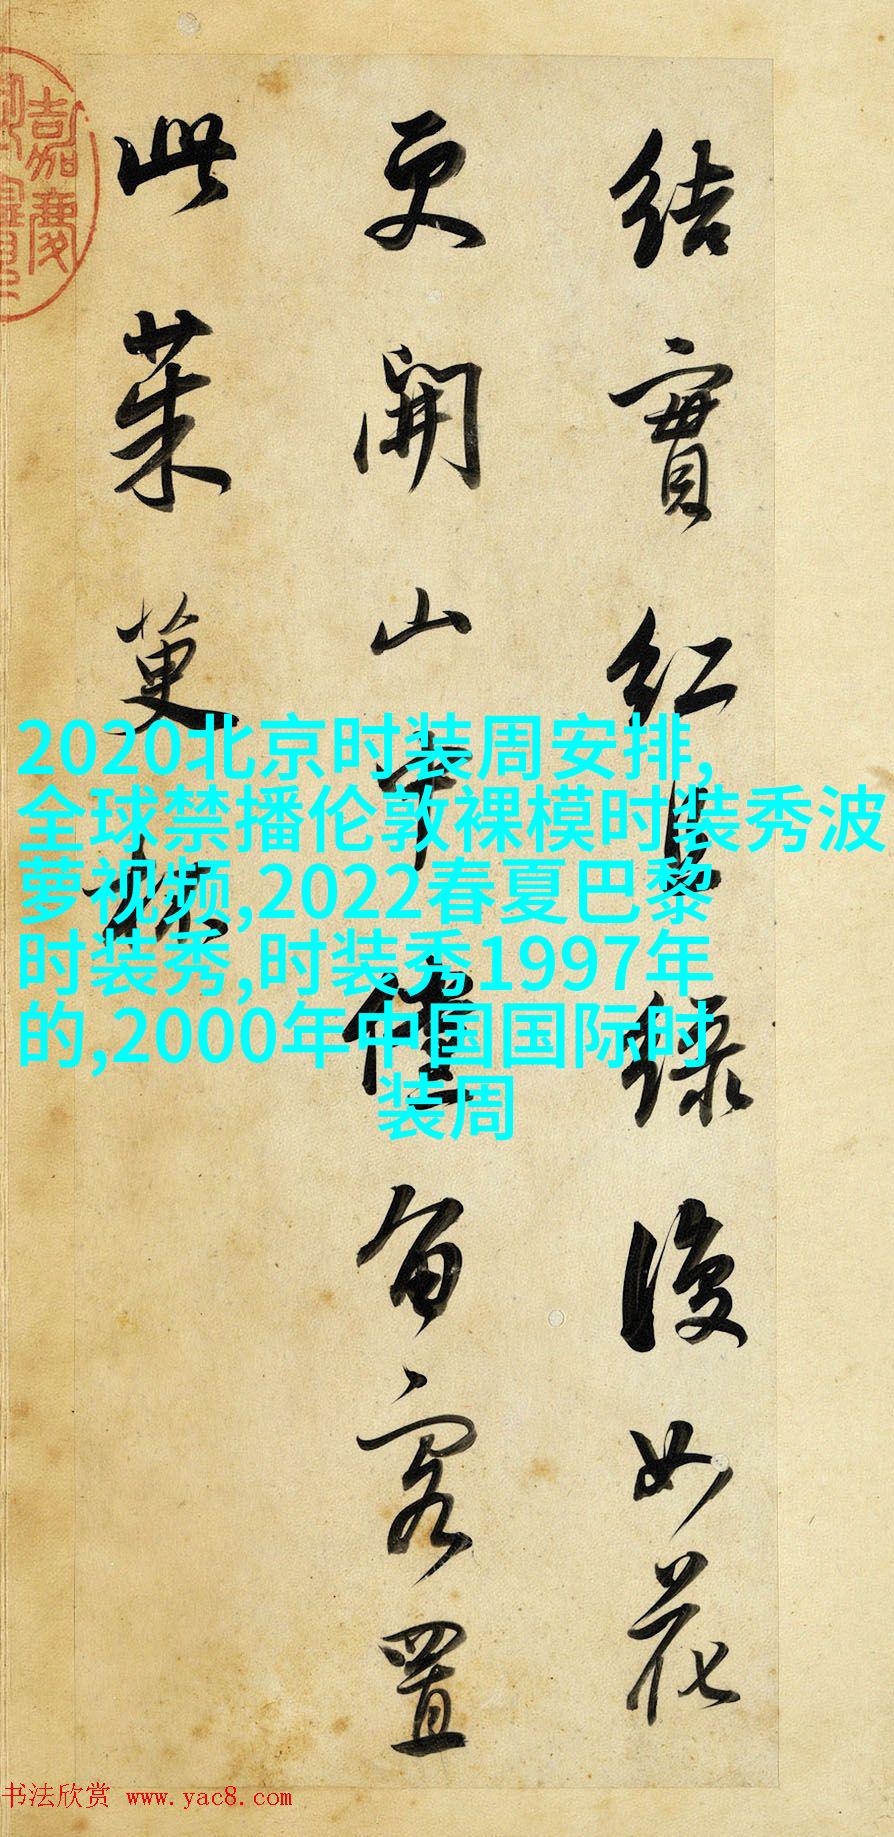 結實紅且綠復如花
更開山中留客置
此茱萸
嘉慶
2020北京时装周安排,
全球禁播伦敦裸模时装秀波
萝视频,2022春夏巴黎
时装秀,时装秀1997年
的,2000年中国国际时
装周
书法欣赏 www.yac8.com